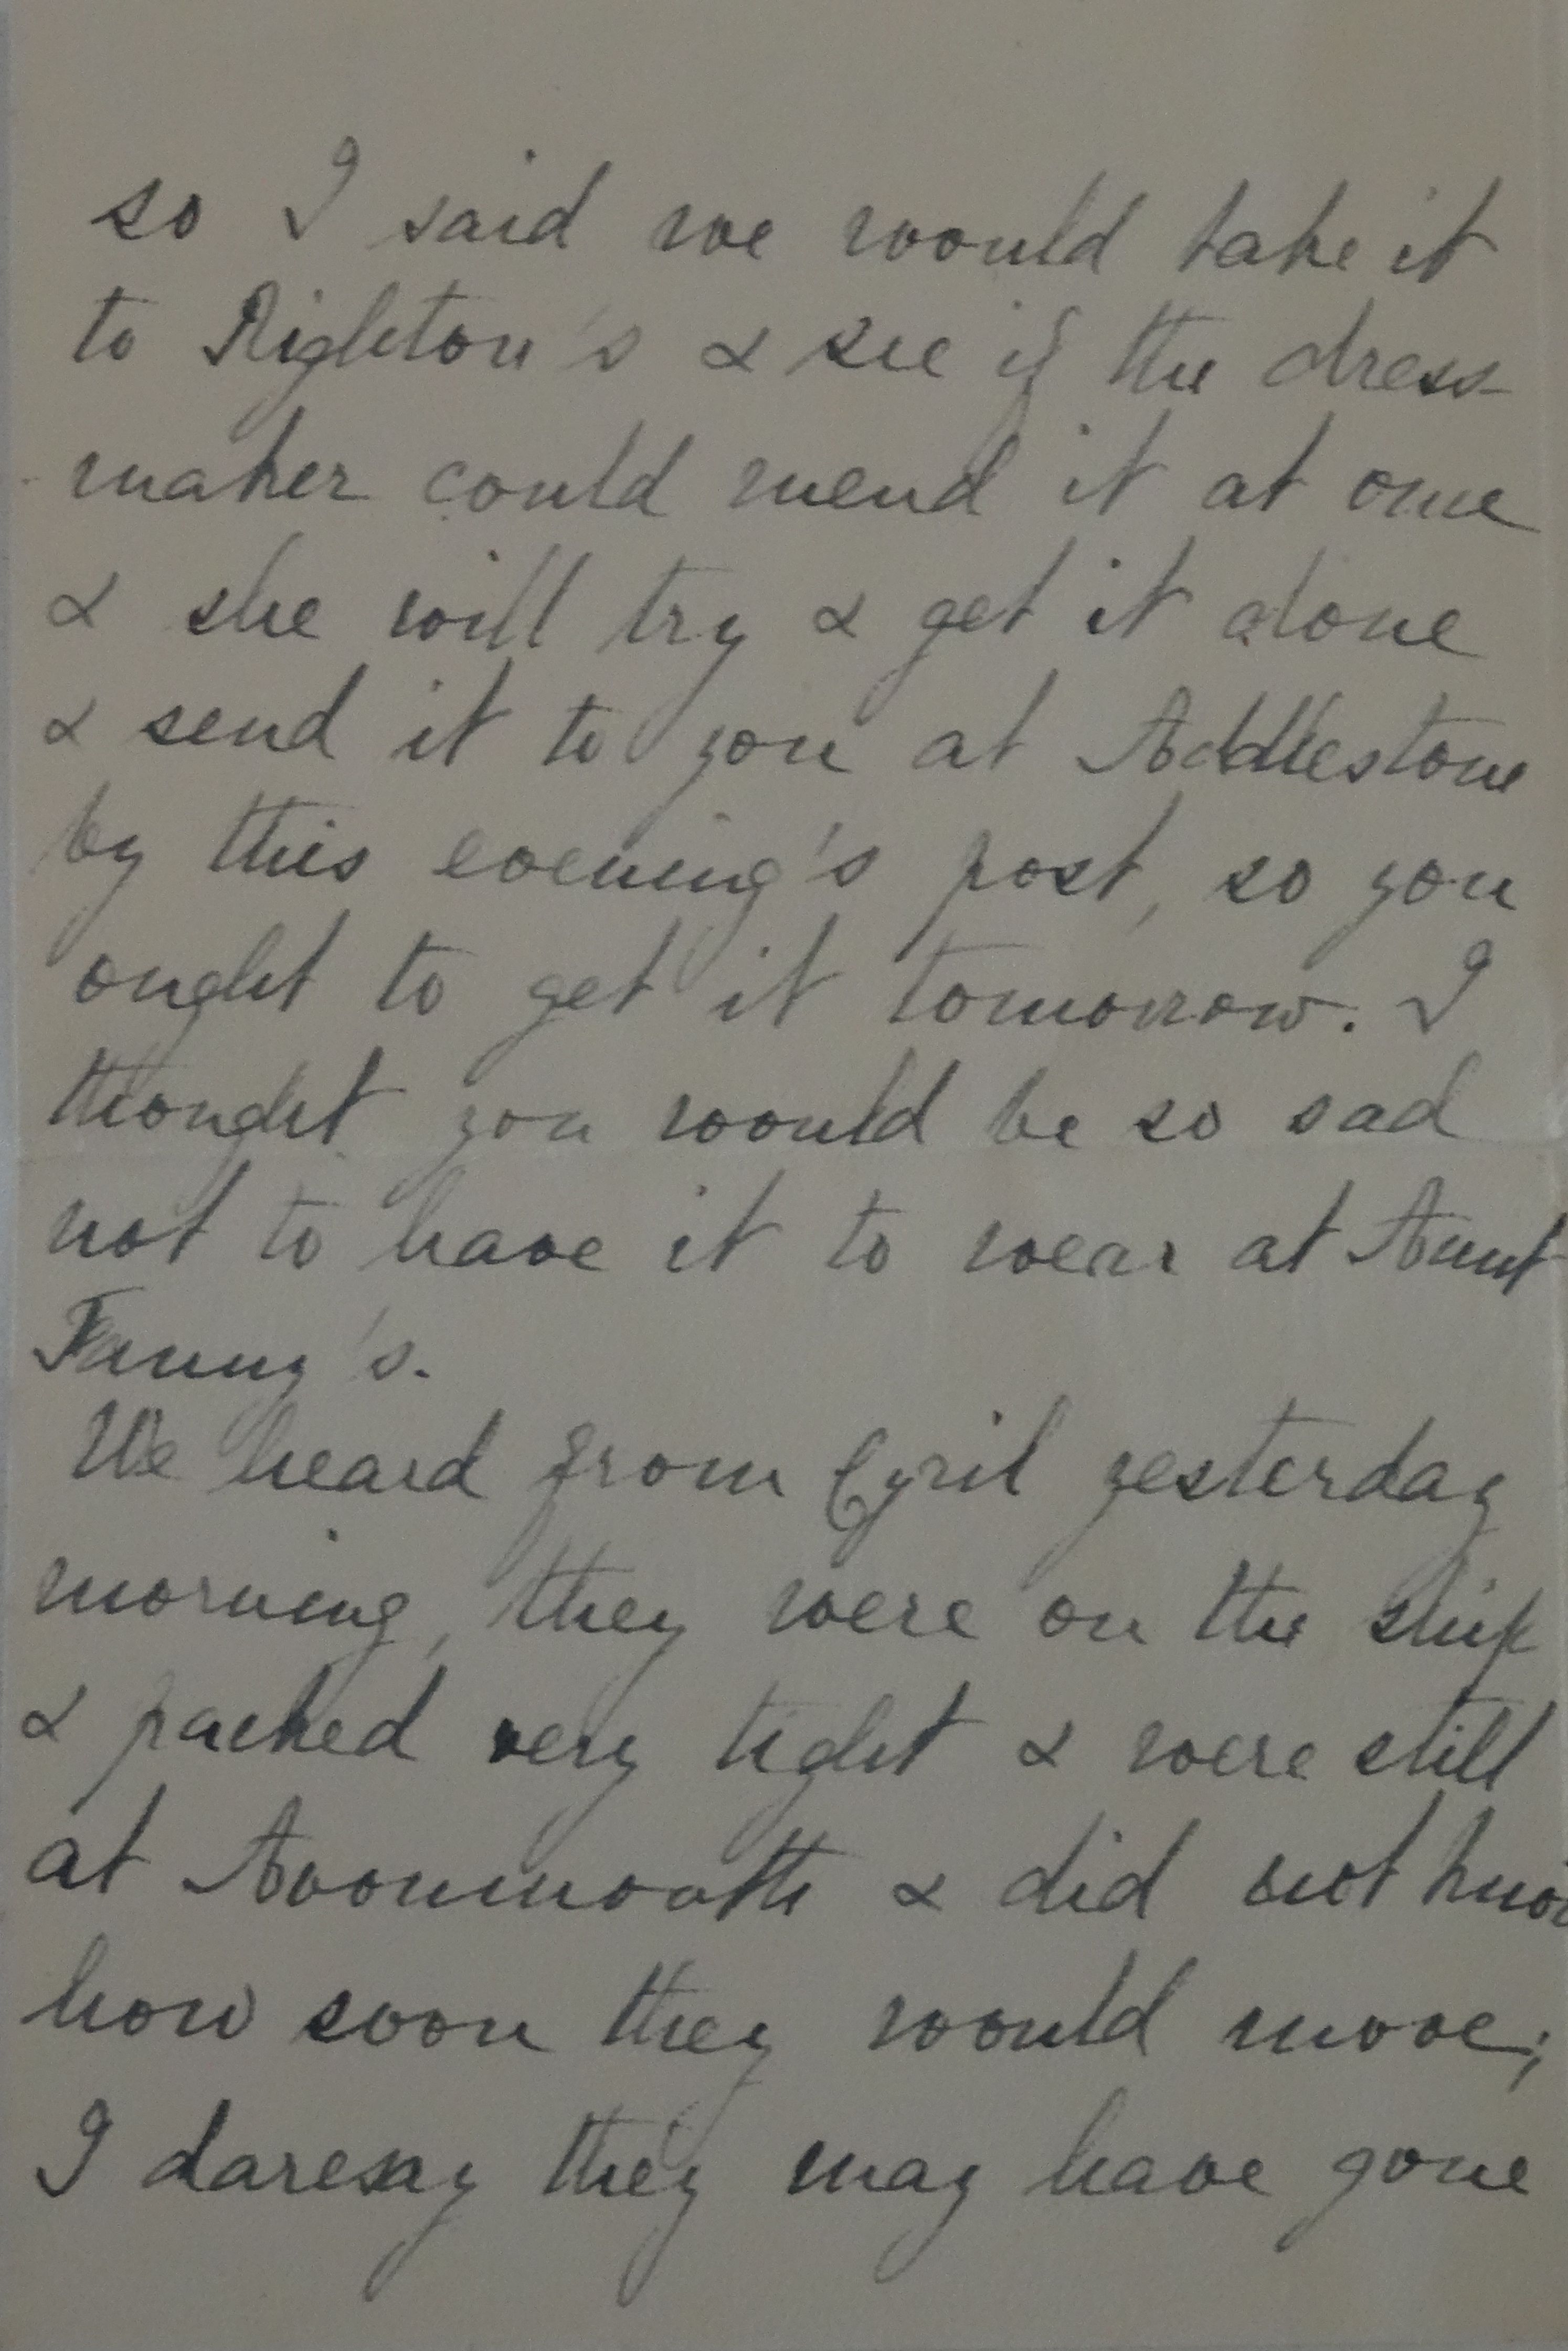 so I said we would take it
to Righton's & see if the dress-
maker could mend it at once
& she will try & get it done
& send it to you at Addlestone
by this evening's post, so you
ought to get it tomorrow. I
thought you would be so sad
not to have it to wear at Aunt
Fanny's.
We heard from Cyril yesterday
morning, they were on the ship
& packed very tight & were still
at Avonmouth & did not know
how soon they would move;
I daresay they may have gone